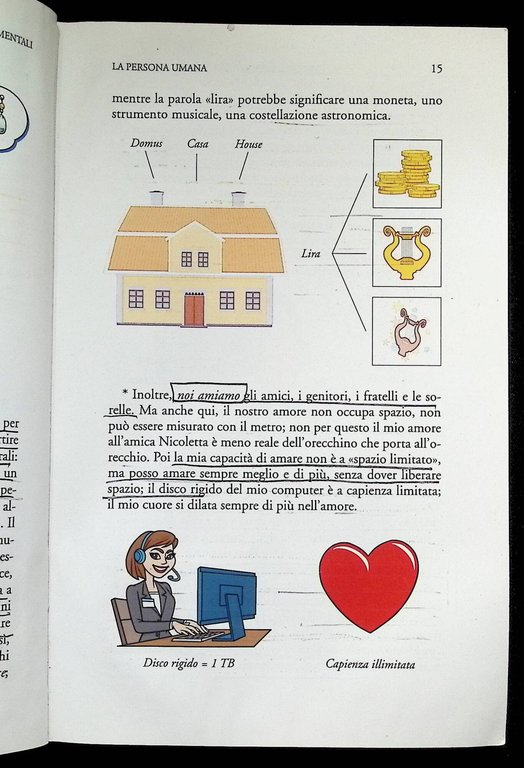 MENTALI
LA PERSONA UMANA 15
mentre la parola «lira» potrebbe significare una moneta, uno
strumento musicale, una costellazione astronomica.
Domus Casa House
Lira
* Inoltre, noi amiamo gli amici, i genitori, i fratelli e le so-
relle. Ma anche qui, il nostro amore non occupa spazio, non
può essere misurato con il metro; non per questo il mio amore
all'amica Nicoletta è meno reale dell'orecchino che porta all'o-
recchio. Poi la mia capacità di amare non è a «spazio limitato»,
ma posso amare sempre meglio e di più, senza dover liberare
spazio; il disco rigido del mio computer è a capienza limitata;
il mio cuore si dilata sempre di più nell'amore.
Disco rigido = 1 TB Capienza illimitata
per
rtire
rali:
un
pe-
al-
. Il
nu-
es-
ce,
a a
ni
re
sì,
hi
re;